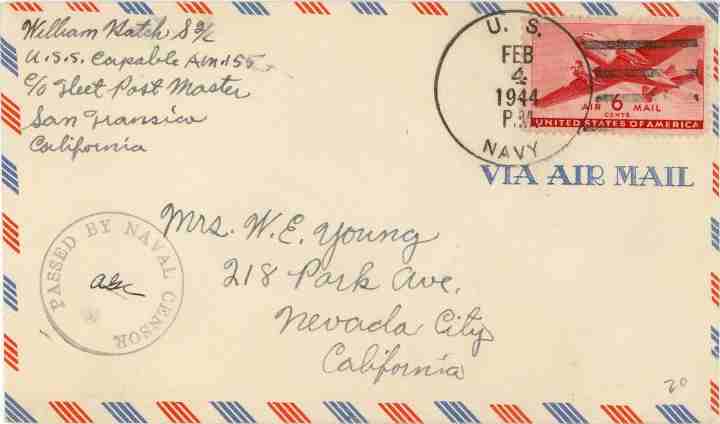 William Hatch S2/c
U.S.S. Capable Am.155
c/o Fleet Post Master
San Fransico
California
U. S.
FEB
4
1944
P.M.
NAVY
AIR 6 MAIL
CENTS
UNITED STATES OF AMERICA
VIA AIR MAIL
PASSED BY NAVAL CENSOR
Mrs. W.E. Young
218 Park Ave.
Nevada City
California
20